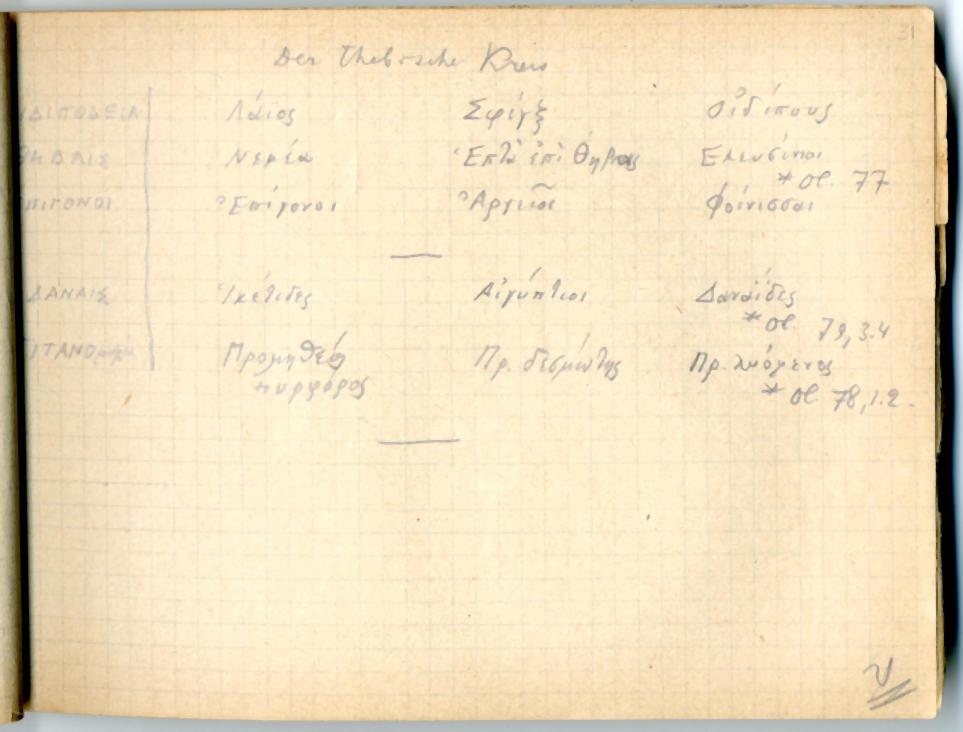 31
Der Thebische Kreis
ΟΙΔΙΠΟΔΕΙΑ Λάιος Σφίγξ Οἰδίπους
ΘΗΒΑΙΣ Νεμέα Ἑπτὰ ἐπὶ Θήβας Ελευσίνιοι
* Ol. 77
ΕΠΙΓΟΝΟΙ Ἐπίγονοι Ἀργεῖοι Φοίνισσαι
ΔΑΝΑΙΣ Ἱκέτιδες Αἰγύπτιοι Δαναΐδες
* Ol. 79,3.4
Προμηθεύς Πρ. δεσμώτης Πρ. λυόμενος
πυρφόρος * Ol. 78,1.2.